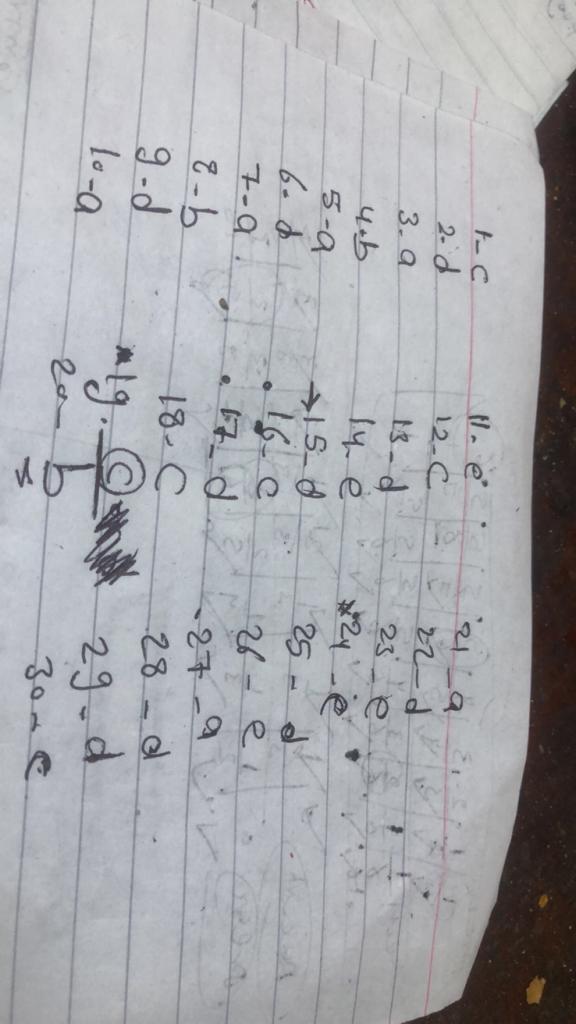 1-c
2-d
3-a
4.b
5-a
6-d
7-a
8-b
9-d
10-a
11-e
12-C
13-d
14-e
→15-d
•16-C
•17-d
18-C
*19.C
20-b
21-a
22-d
23-e
*24-e
25-d
26-e
•27-a
28-d
29-d
30-e